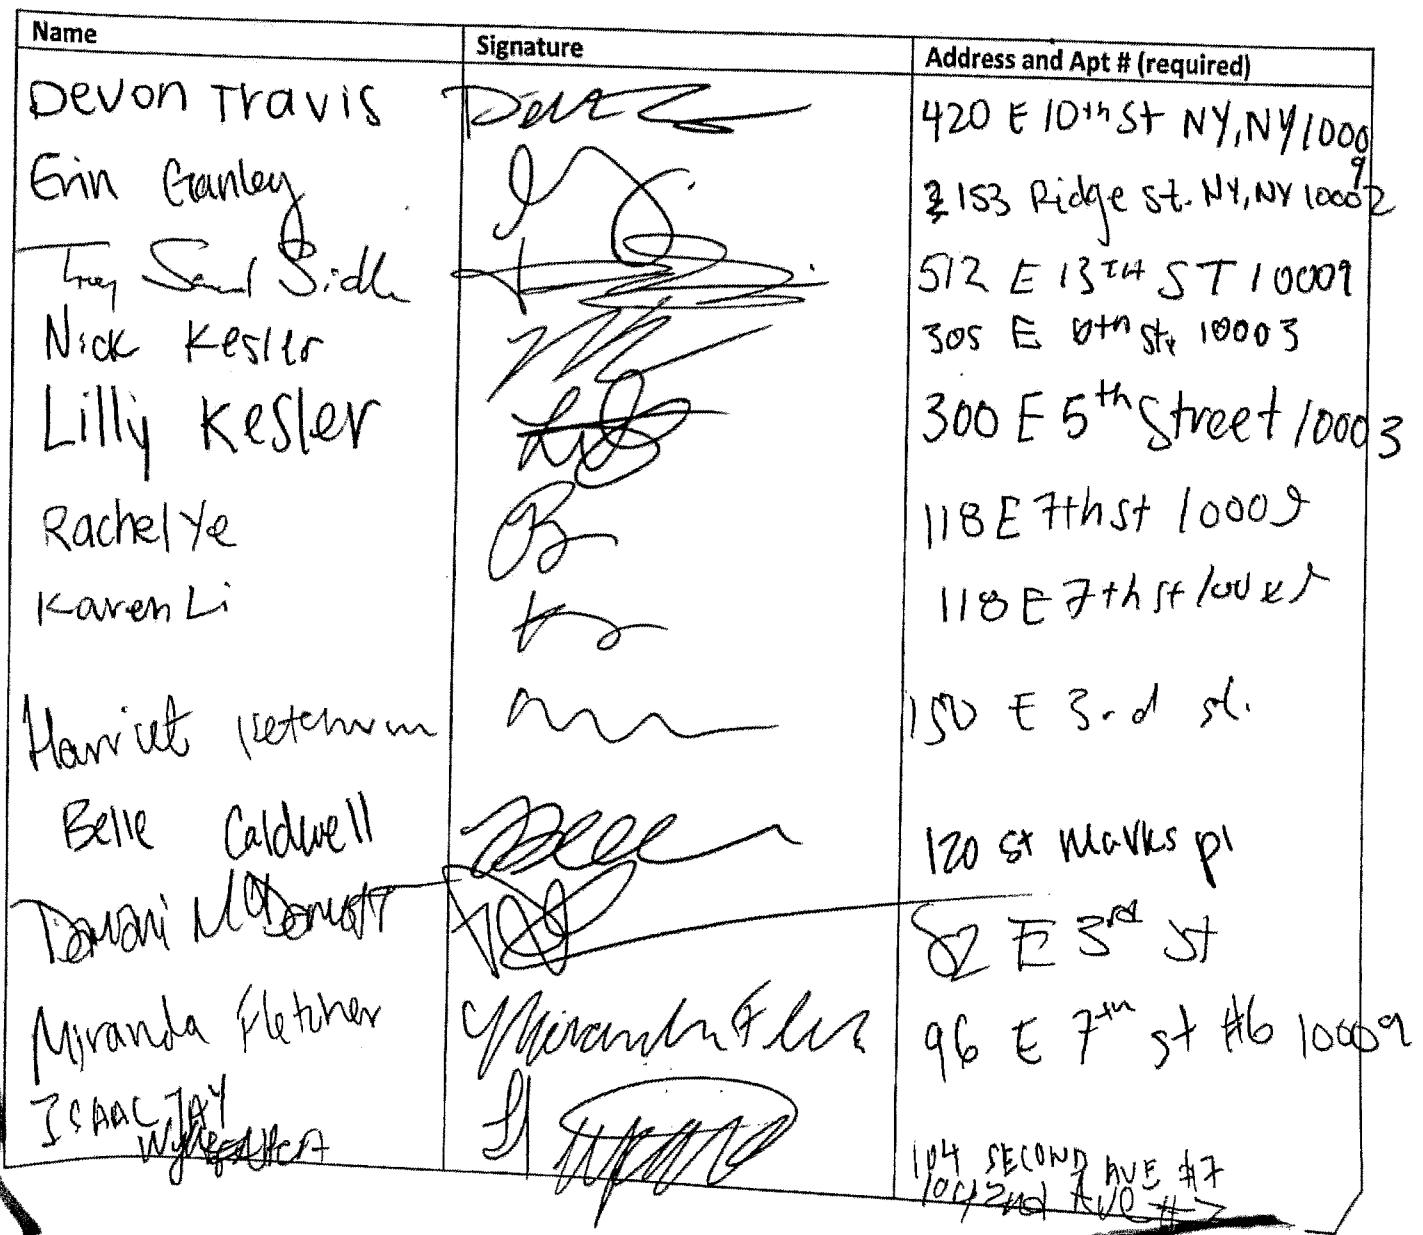 Name Signature Address and Apt # (required)
Devon Travis 420 E 10th St NY, NY 10009
Erin Ganley 153 Ridge st. NY, NY 10002
Troy 512 E 13TH ST 10009
Nick Kesler 305 E 6th st, 10003
Lilly Kesler 300 E 5th Street 10003
Rachel Ye 118 E 7th st 10009
Karen Li 118 E 7th st
Harriet Ketchum 150 E 3rd st.
Belle Caldwell 120 st Marks pl
McDermott 82 E 3rd St
Miranda Fletcher Miranda Fletcher 96 E 7th st #6 10009
ISAAC JAY 104 SECOND AVE #7
104 2nd Ave #7